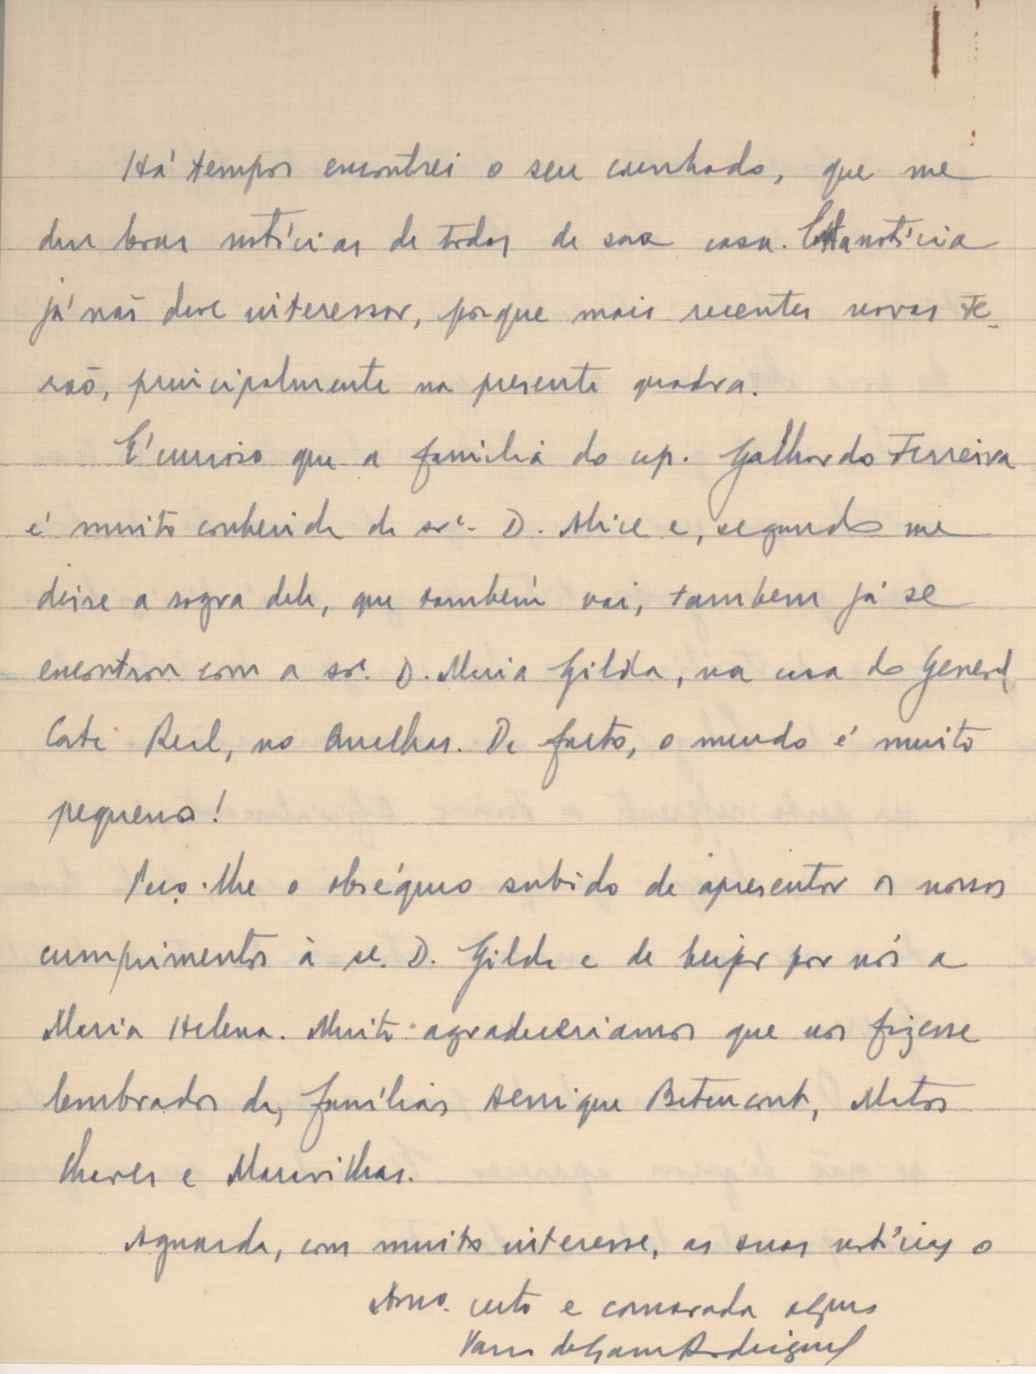 Há tempos encontrei o seu cunhado, que me
deu boas notícias de todos de sua casa. Esta notícia
já não deve interessar, porque mais recentes novas te-
rão, principalmente na presente quadra.
É curioso que a família do cap. Galhardo Ferreira
é muito conhecida da srª. D. Alice e, segundo me
disse a sogra dele, que também vai, tambem já se
encontrou com a srª. D. Maria Gilda, na casa do General
Corte Real, no Quelhas. De facto, o mundo é muito
pequeno!
Peço-lhe o obséquio subido de apresentar os nossos
cumprimentos à sr. D. Gilda e de beijar por nós a
Maria Helena. Muito agradeceriamos que nos fizesse
lembrados das famílias Henrique Betencourt, Matos
Chaves e Maravilhas.
Aguarda, com muito interesse, as suas notícias o
Amo. certo e camarada
Vasco da Gama Rodrigues